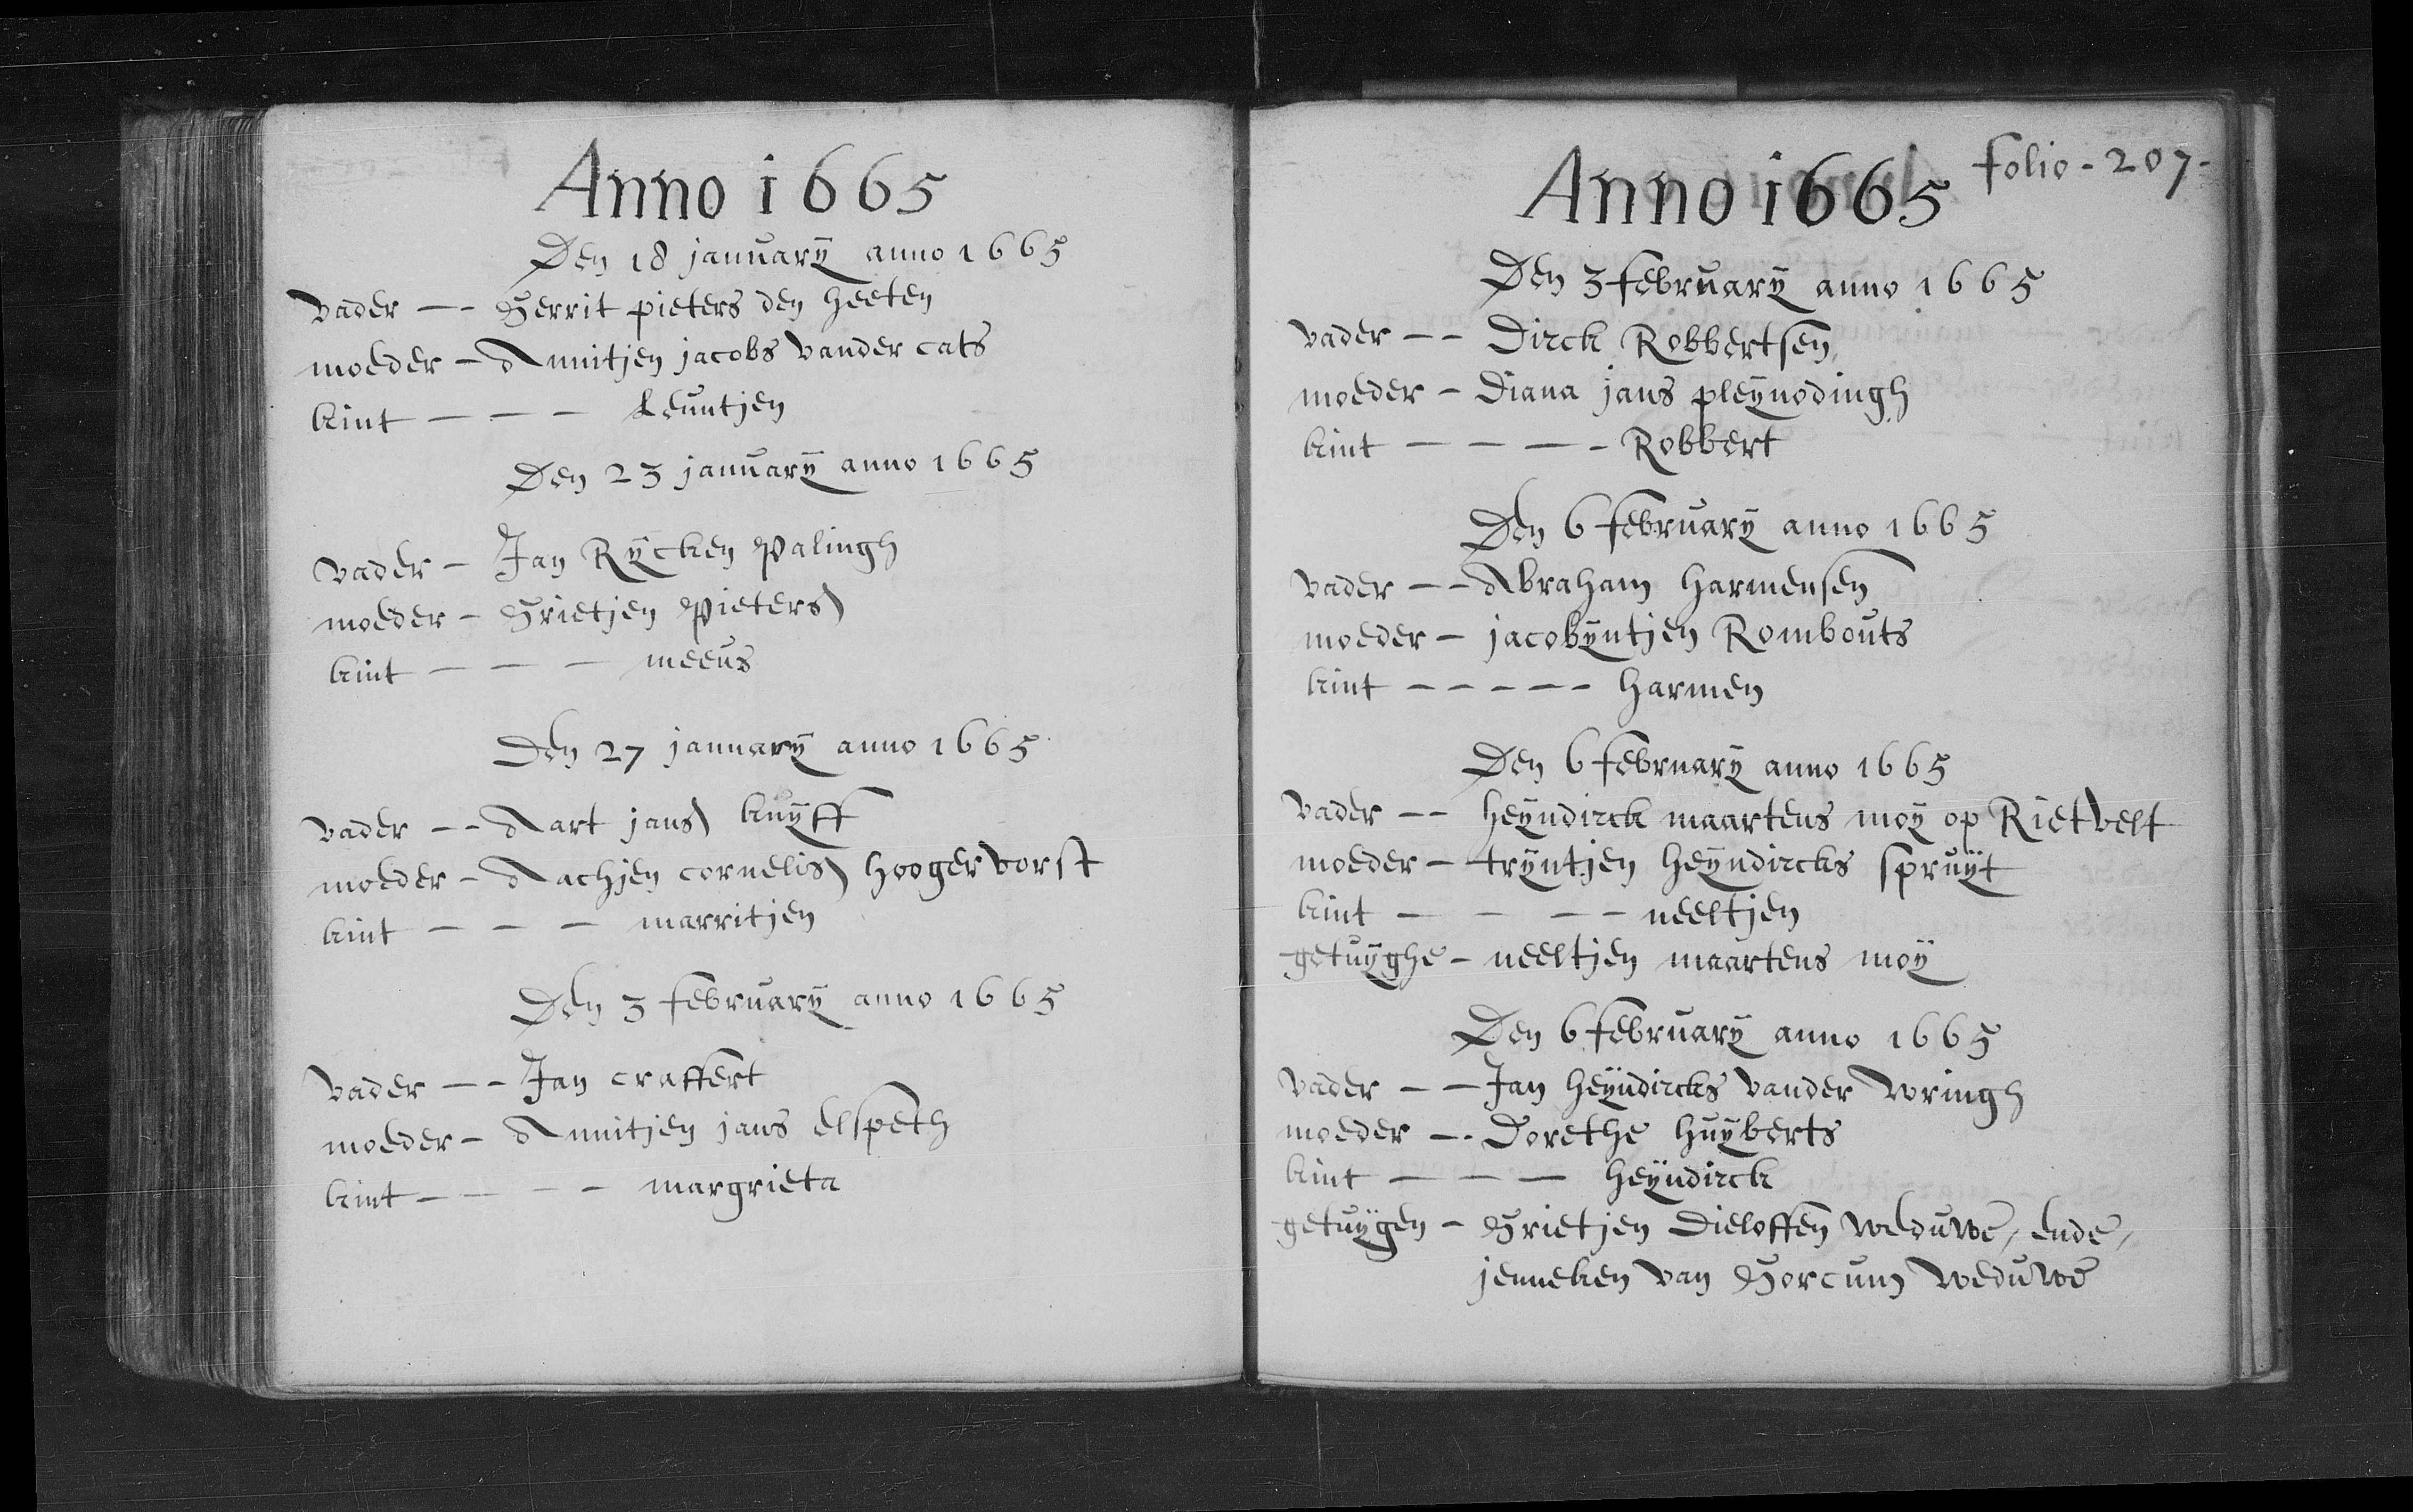 Anno 1665
Den 18 january anno 1665
vader -- Gerrit pieters den heeten
moeder - Annitjen jacobs vander cats
kint - - - Leuntjen
Den 23 january anno 1665
vader - Jan Rycken Palingh
moeder - Grietjen Pieters
kint - - - meeus
Den 27 january anno 1665
vader -- Aart jans kuyff
moeder - Aachjen cornelis hoogervorst
kint - - - marritjen
Den 3 february anno 1665
vader -- Jan craffert
moeder - Annitjen jans elspeth
kint - - - - margrieta
folio - 207 -
Anno 1665
Den 3 february anno 1665
vader -- Dirck Robbertsen
moeder - Diana jans pleynodingh
kint - - - - Robbert
Den 6 february anno 1665
vader -- Abraham harmensen
moeder - jacobyntjen Rombouts
kint - - - - - harmen
Den 6 february anno 1665
vader -- heyndirck maartens moy op Rietvelt
moeder - tryntjen heyndircks spruyt
kint - - - - neeltjen
getuyghe - neeltjen maartens moy
Den 6 february anno 1665
vader - - Jan heyndircks vander wringh
moeder -- Dorethe huyberts
kint - - - heyndirck
getuygen - Grietjen Dieloffen weduwe, ende,
jenneken van Gorcum weduwe